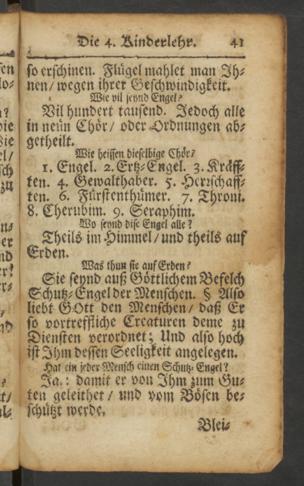 Die 4. Kinderlehr. 41
so erschinen. Flügel mahlet man Ih-
nen / wegen ihrer Geschwindigkeit.
Wie vil seynd Engel?
Vil hundert tausend. Jedoch alle
in neün Chör / oder Ordnungen ab-
getheilt.
Wie heissen dieselbige Chör?
1. Engel. 2. Ertz-Engel. 3. Kräff-
ten. 4. Gewalthaber. 5. Herrschaff-
ten. 6. Fürstenthümer. 7. Throni.
8. Cherubim. 9. Seraphim.
Wo seynd dise Engel alle?
Theils im Himmel / und theils auf
Erden.
Was thun sie auf Erden?
Sie seynd auß Göttlichem Befelch
Schutz-Engel der Menschen. § Also
liebt GOtt den Menschen / daß Er
so vortreffliche Creaturen deme zu
Diensten verordnet; Und also hoch
ist Ihm dessen Seeligkeit angelegen.
Hat ein jeder Mensch einen Schutz-Engel?
Ja.: damit er von Ihm zum Gu-
ten geleithet / und vom Bösen be-
schützt werde.
Blei-